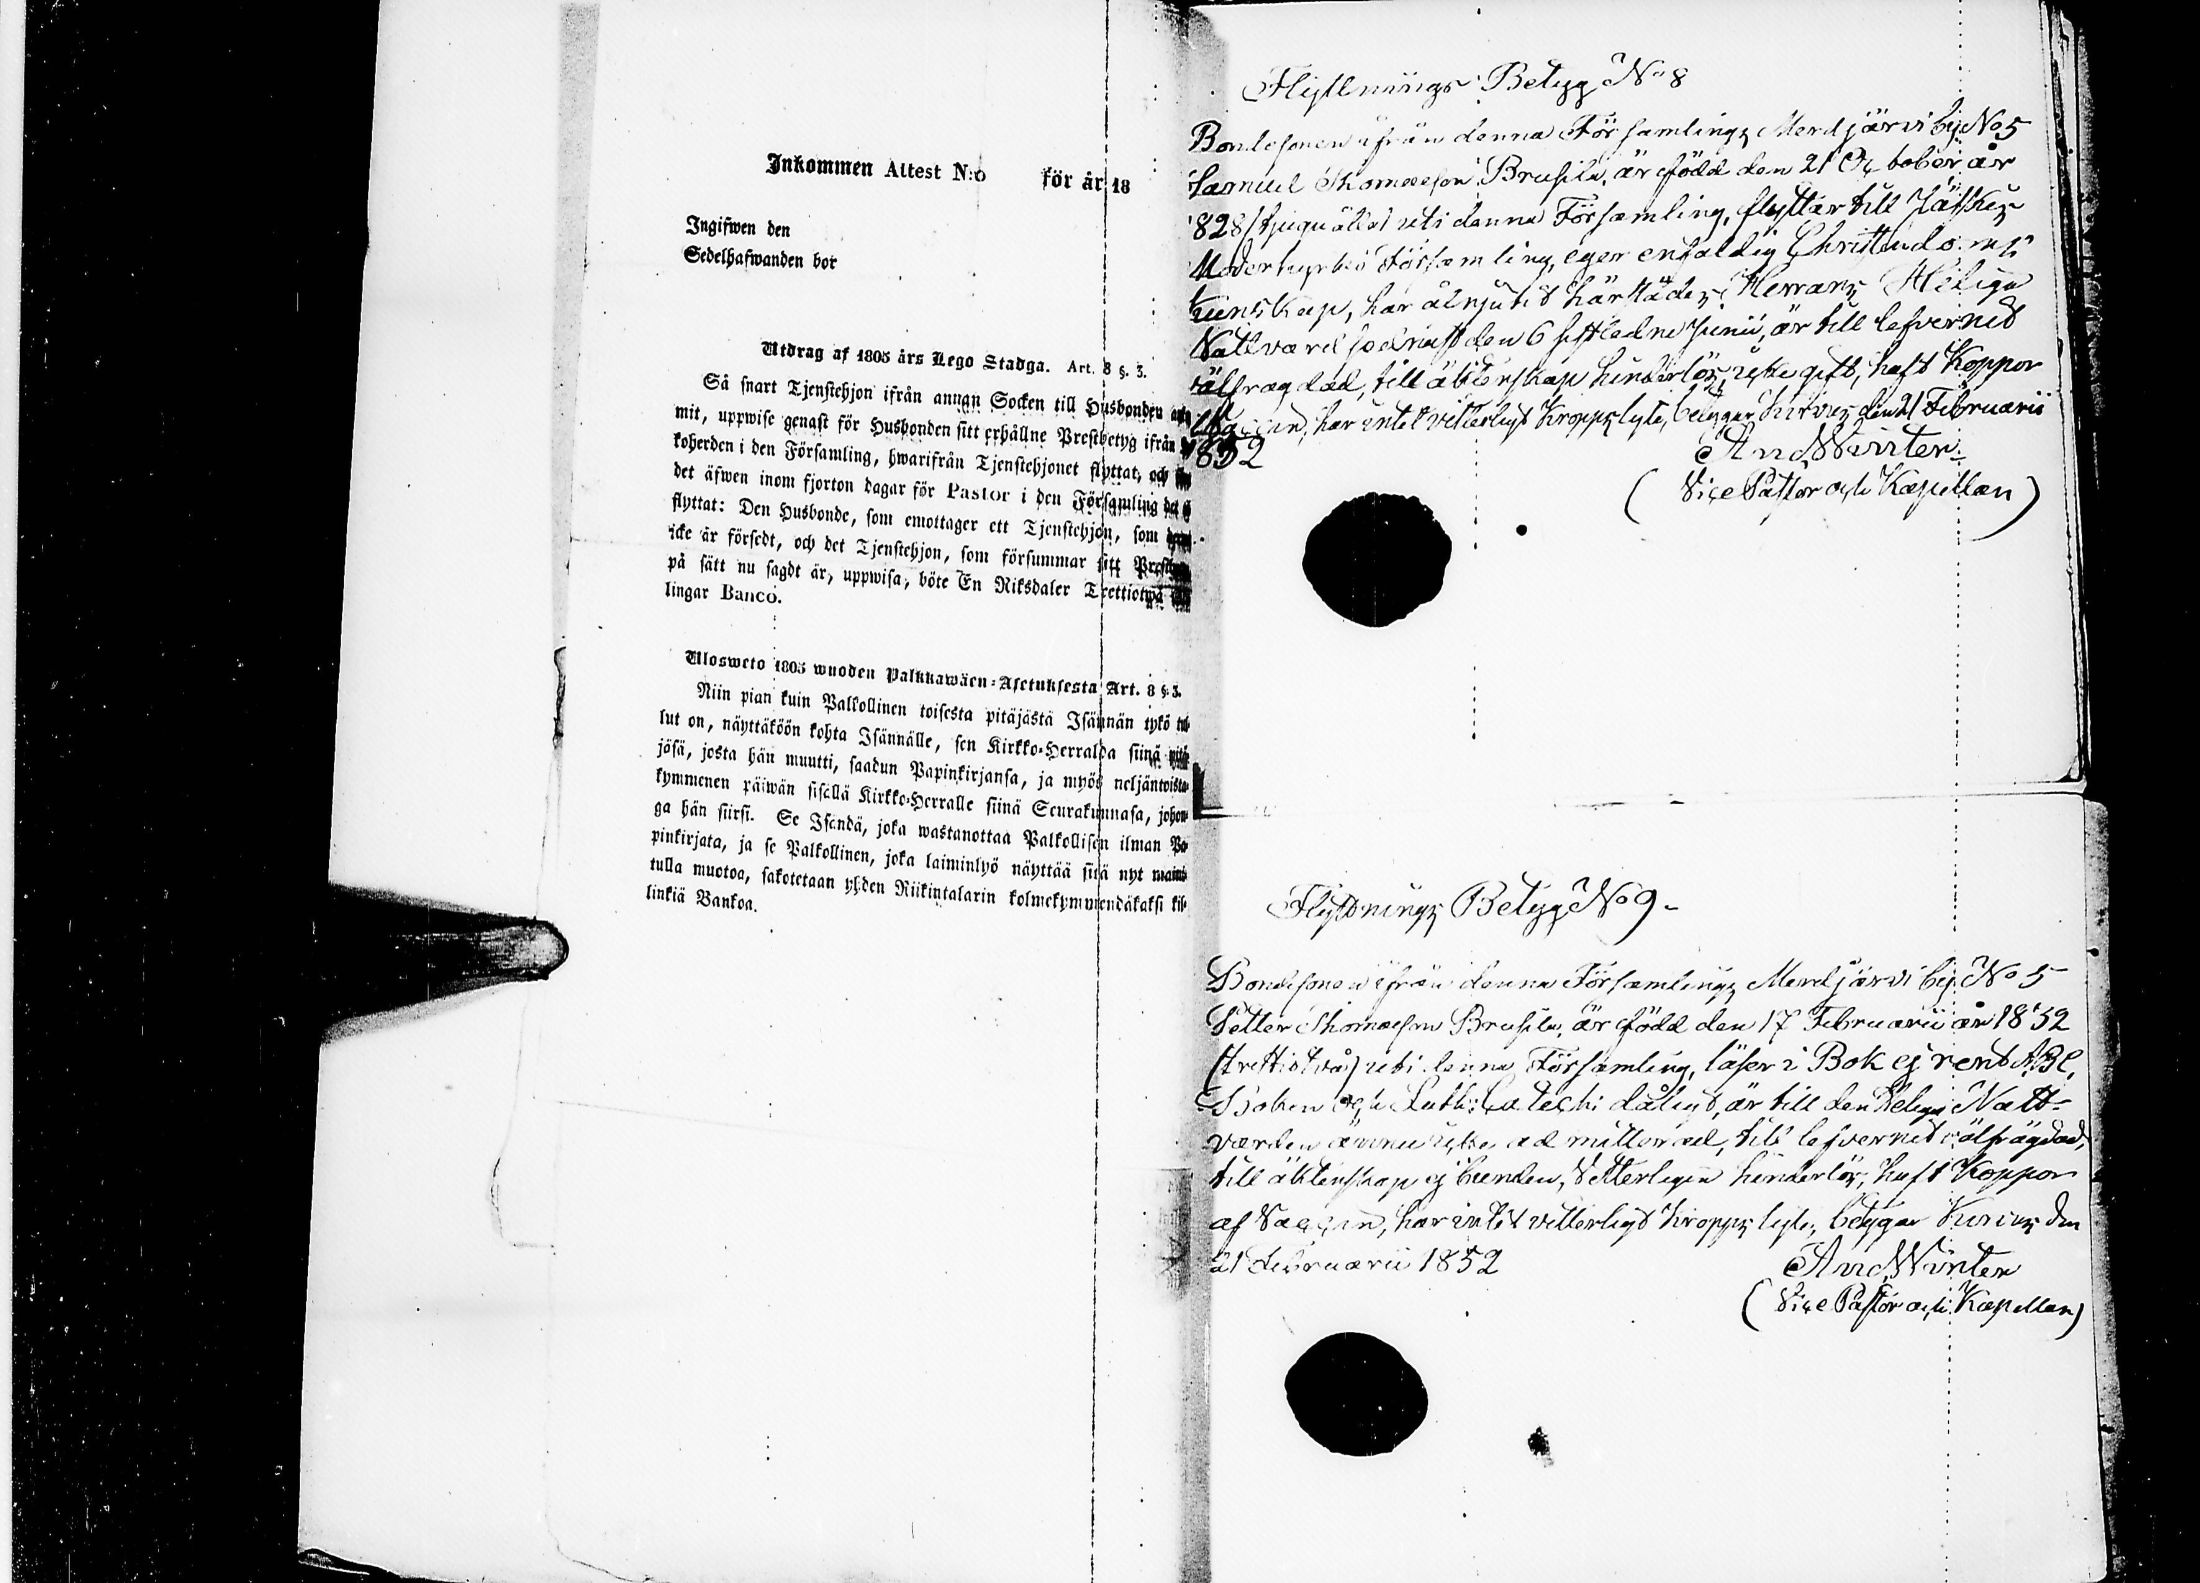 Inkommen Attest N:o för år 18
Ingifwen den
Sedelhafwanden bor
Utdrag af 1805 års Lego Stadga. Art. 8 §. 3.
Så snart Tjenstehjon ifrån annan Socken till Husbonden
mit, uppwise genast för Husbonden sitt erhållne Prestbetyg ifrån
koherden i den Församling, hwarifrån Tjenstehjonet flyttat, och
det äfwen inom fjorton dagar för Pastor i den Församling
flyttat: Den Husbonde, som emottager ett Tjenstehjon, som
icke är försedt, och det Tjenstehjon, som försummar sitt
på sätt nu sagdt är, uppwisa, böte En Riksdaler Trettiotwå
lingar Banco.
Ulosweto 1805 wuoden Palkkawäen-Asetuksesta Art. 8 §. 3.
Niin pian kuin Palkollinen toisesta pitäjästä Isännän tykö tul-
lut on, näyttäköön kohta Isännälle, sen Kirkko-Herralda siinä pitä-
jäsä, josta hän muutti, saadun Papinkirjansa, ja myös neljäntoista-
kymmenen päiwän sisällä Kirkko-Herralle siinä Seurakunnasa, johon-
ga hän siirsi. Se Isändä, joka wastanottaa Palkollisen ilman Pa-
pinkirjata, ja se Palkollinen, joka laiminlyö näyttää sitä nyt mainit-
tulla muotoa, sakotetaan yhden Riikintalarin kolmekymmendäkaksi kil-
linkiä Bankoa.
Flyttnings Betyg No 8
Bondesonen ifrån denna Församlings Merdjärvi by No 5
Samuel Thomasson Brusila, är född den 21 October år
1828 (tjuguåtta) uti denna Församling, flyttar till Jäthis
Moderkyrkio Församling, eger enfaldig Christendoms
kunskap, har åtnjutit härstädes Herrans Heliga
Nattvard sednast den 6 sistledne Junii, är till lefvernet
välfrägdad, till äktenskap hinderlös, icke gift, haft Koppor
Vaccin, har intet vitterligt kropps lyte, betygar den 21 Februarii
1852
And Winter
(Vice Pastor och Kapellan)
Flyttnings Betyg No 9-
Bondesonen ifrån denna Församlings Merdjärvi by No 5
Petter Thomasson Brusila, är född den 17 Februarii år 1832
(trettiotvå) uti denna Församling, läser i Bok ej rent ABC,
Boken och Luth: Cateches dåligt, är till den Heliga Natt-
varden ännu icke admitterad, till lefvernet välfrägdad,
till äktenskap ej bunden, Vetterligen hinderlös, haft Koppor
af Vaccin, har intet vitterligt kropps lyte, betygar den
21 Februarii 1852
And Winter
(Vice Pastor och Kapellan)